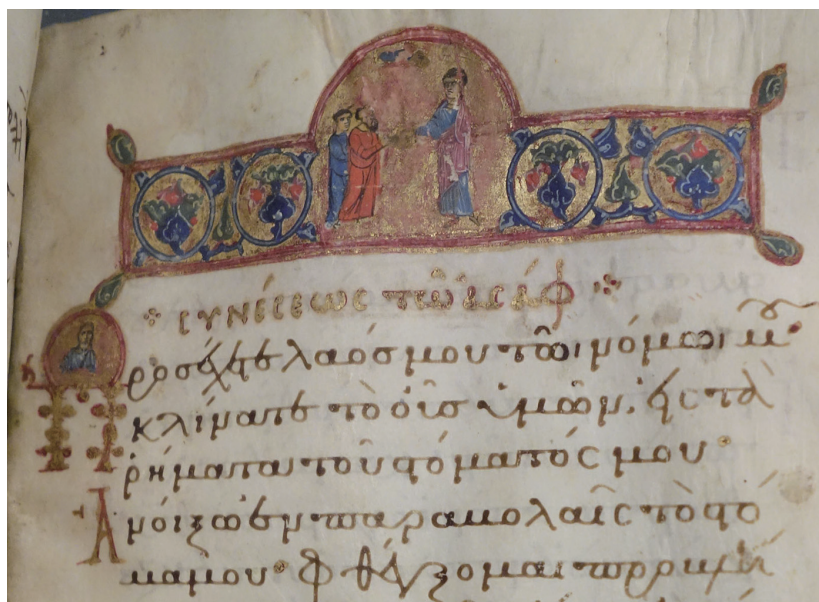 συνέσεως τῶ ἀσάφ
Προσέχετε λαόσ μου τῶ νόμω μου
κλίνατε τὸ οὖσ ὑμῶν, εἰς τὰ
ῥήματα τοῦ στόματός μου
Ἀνοίξω ἐν παραβολαῖς τὸ στό
μα μου φθέγξομαι